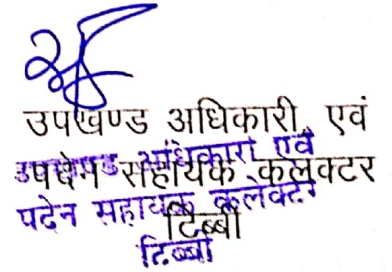 उपखण्ड अधिकारी एवं
उपखण्ड अधिकारी एवं
पदेन सहायक कलेक्टर
पदेन सहायक कलेक्टर
टिब्बी
टिब्बी